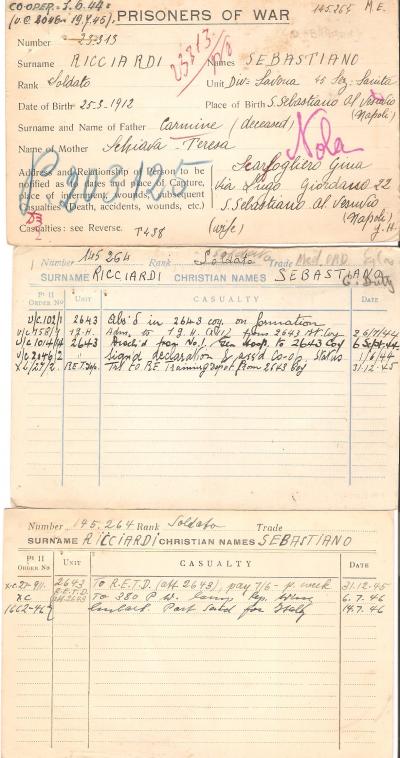 CO-OPER= 1.6.44=
PRISONERS OF WAR
145265 M.E.
Number 23313
23313
Surname RICCIARDI Names SEBASTIANO
Rank Soldato Unit Div= Savona 45 Sez. Sanita
Date of Birth 25.3.1912 Place of Birth S Sebastiano Al Vesuvio
(Napoli)
Surname and Name of Father Carmine (deceased)
Name of Mother Schiavo Teresa
Nola
Address and Relationship of person to be
notified as regards the Place of Capture,
place of internment and subsequent
Casualties (Death, accidents, wounds, etc.)
Scarfogliero Gina
Via Luigo Giordano 22
S Sebastiano Al Vesuvio
(Napoli)
P 203125
Casualties: see Reverse. T438 (wife)
Number 145264 Rank Soldato Trade
SURNAME RICCIARDI CHRISTIAN NAMES SEBASTIANO
G. Duty
Pt II ORDER NO UNIT CASUALTY DATE
2643 Abs'd in 2643 coy. on formation
from 2643 Coy
2643 No.1. Gen Hosp. to 2643 Coy
V/C2046/2 Signd declaration & ass'd Co-op. Status 1/6/44
to R.E. Training Depot from 2643 Coy 31.12.45
Number 145.264 Rank Soldato Trade
SURNAME RICCIARDI CHRISTIAN NAMES SEBASTIANO
Pt II ORDER NO UNIT CASUALTY DATE
2643 To R.E.T.D. (att 2643), pay 7/6 - p. week 31.12.45
XC R.E.T.D. att 2643 To 380 P.W. Camp Rep. Wing 6.7.46
1662-46 Embark. Port Said for Italy 14.7.46